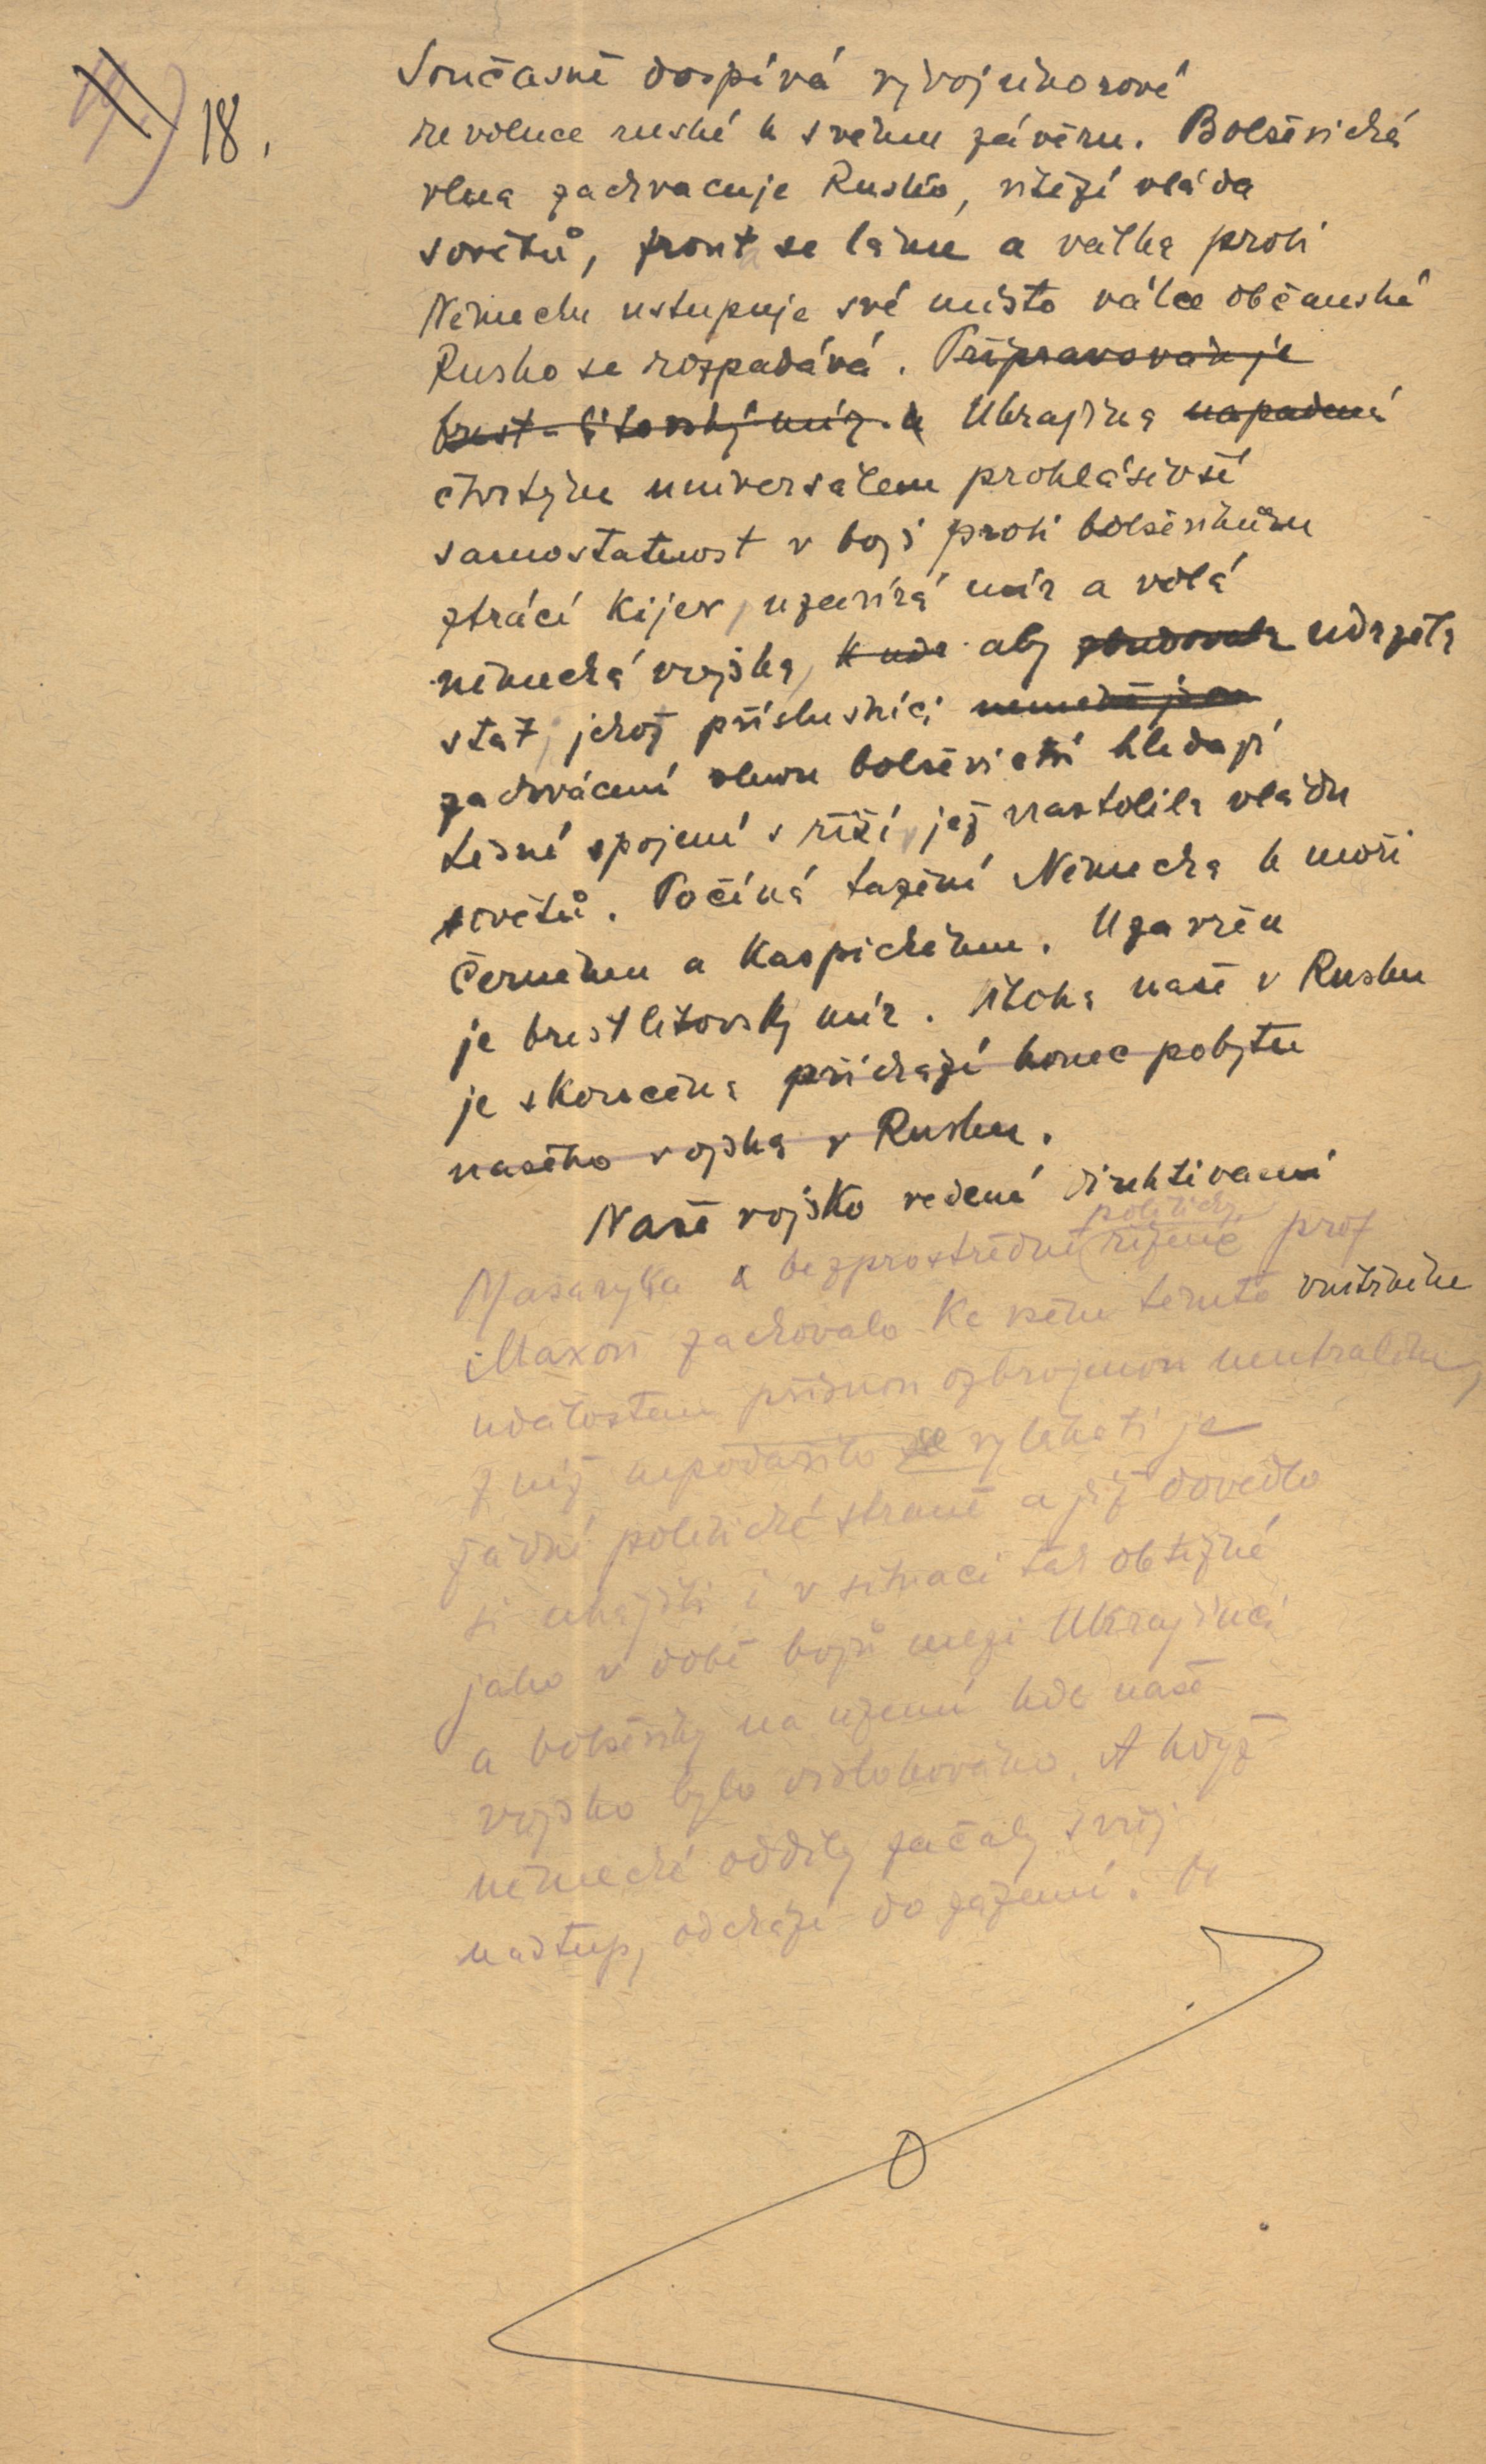 18.
Současně dospívá vývoj únorové
revoluce ruské k svému závěru. Bolševická
vlna zachvacuje Rusko, vítězí vláda
sovětů, fronta se láme a válka proti
Německu ustupuje své místo válce občanské
Rusko se rozpadává. Připravován je
brest-litovský mír. Ukrajina napadená
čtvrtým universálem prohlásivší
samostatnost v boji proti bolševikům
ztrácí Kijev, uzavírá mír a volá
německá vojska, aby udržela
stát, jehož příslušníci
zachváceni vlnou bolševictví hledají
těsné spojení s říší, jež nastolila vládu
sovětů. Počíná tažení Německa k moři
černému a Kaspickému. Uzavřen
je brestlitovský mír. Úloha naše v Rusku
je skončena přichází konec pobytu
našeho vojska v Rusku.
Naše vojsko vedené direktivami
politicky
Masaryka a bezprostředně řízené prof
Maxou zachovalo ke všem těmto vnitřním
událostem přísnou ozbrojenou neutralitu,
z níž nepodařilo se vylákati je
žádné politické straně a jíž dovedlo
si uhájiti i v situaci tak obtížné
jako v době bojů mezi Ukrajinci
a bolševiky na území kde naše
vojsko bylo dislokováno. A když
německé oddíly začaly svůj
nástup, odchází do zázemí.